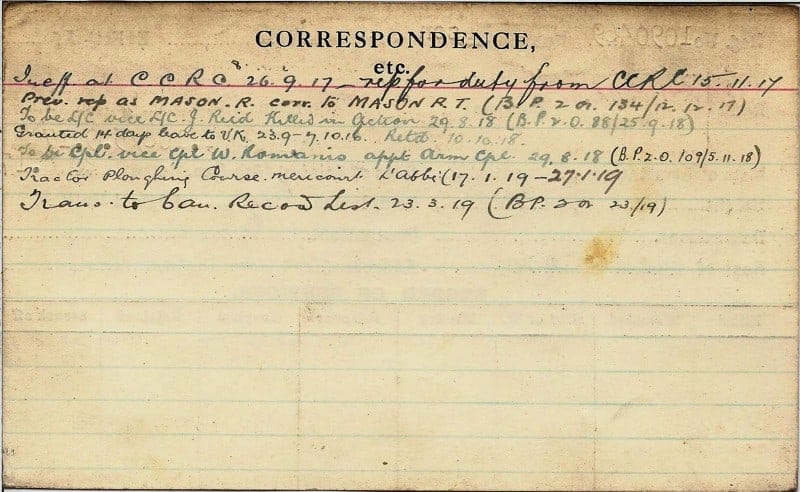 CORRESPONDENCE,
etc.
Ineff at C C R C 26.9.17 – rep for duty from CCRC 15.11.17
Prev. rep as MASON. R. corr. to MASON R.T. (B.P. 2 or. 134/12.12.17)
To be L/C vice L/C. J. Reid Killed in Action 29.8.18 (B.P. 2.O. 88/25.9.18)
Granted 14 days leave to U.K. 23.9-7.10.16. Retd. 10.10.18.
To be Cpl. vice Cpl W. Romanis appt Arm Cpl. 29.8.18 (B.P.2.O. 109/5.11.18)
Tractor Ploughing Course. mericourt L'abbé (17.1.19–27.1.19
Trans. to Can. Record List. 23.3.19 (B.P. 2 or 23/19)